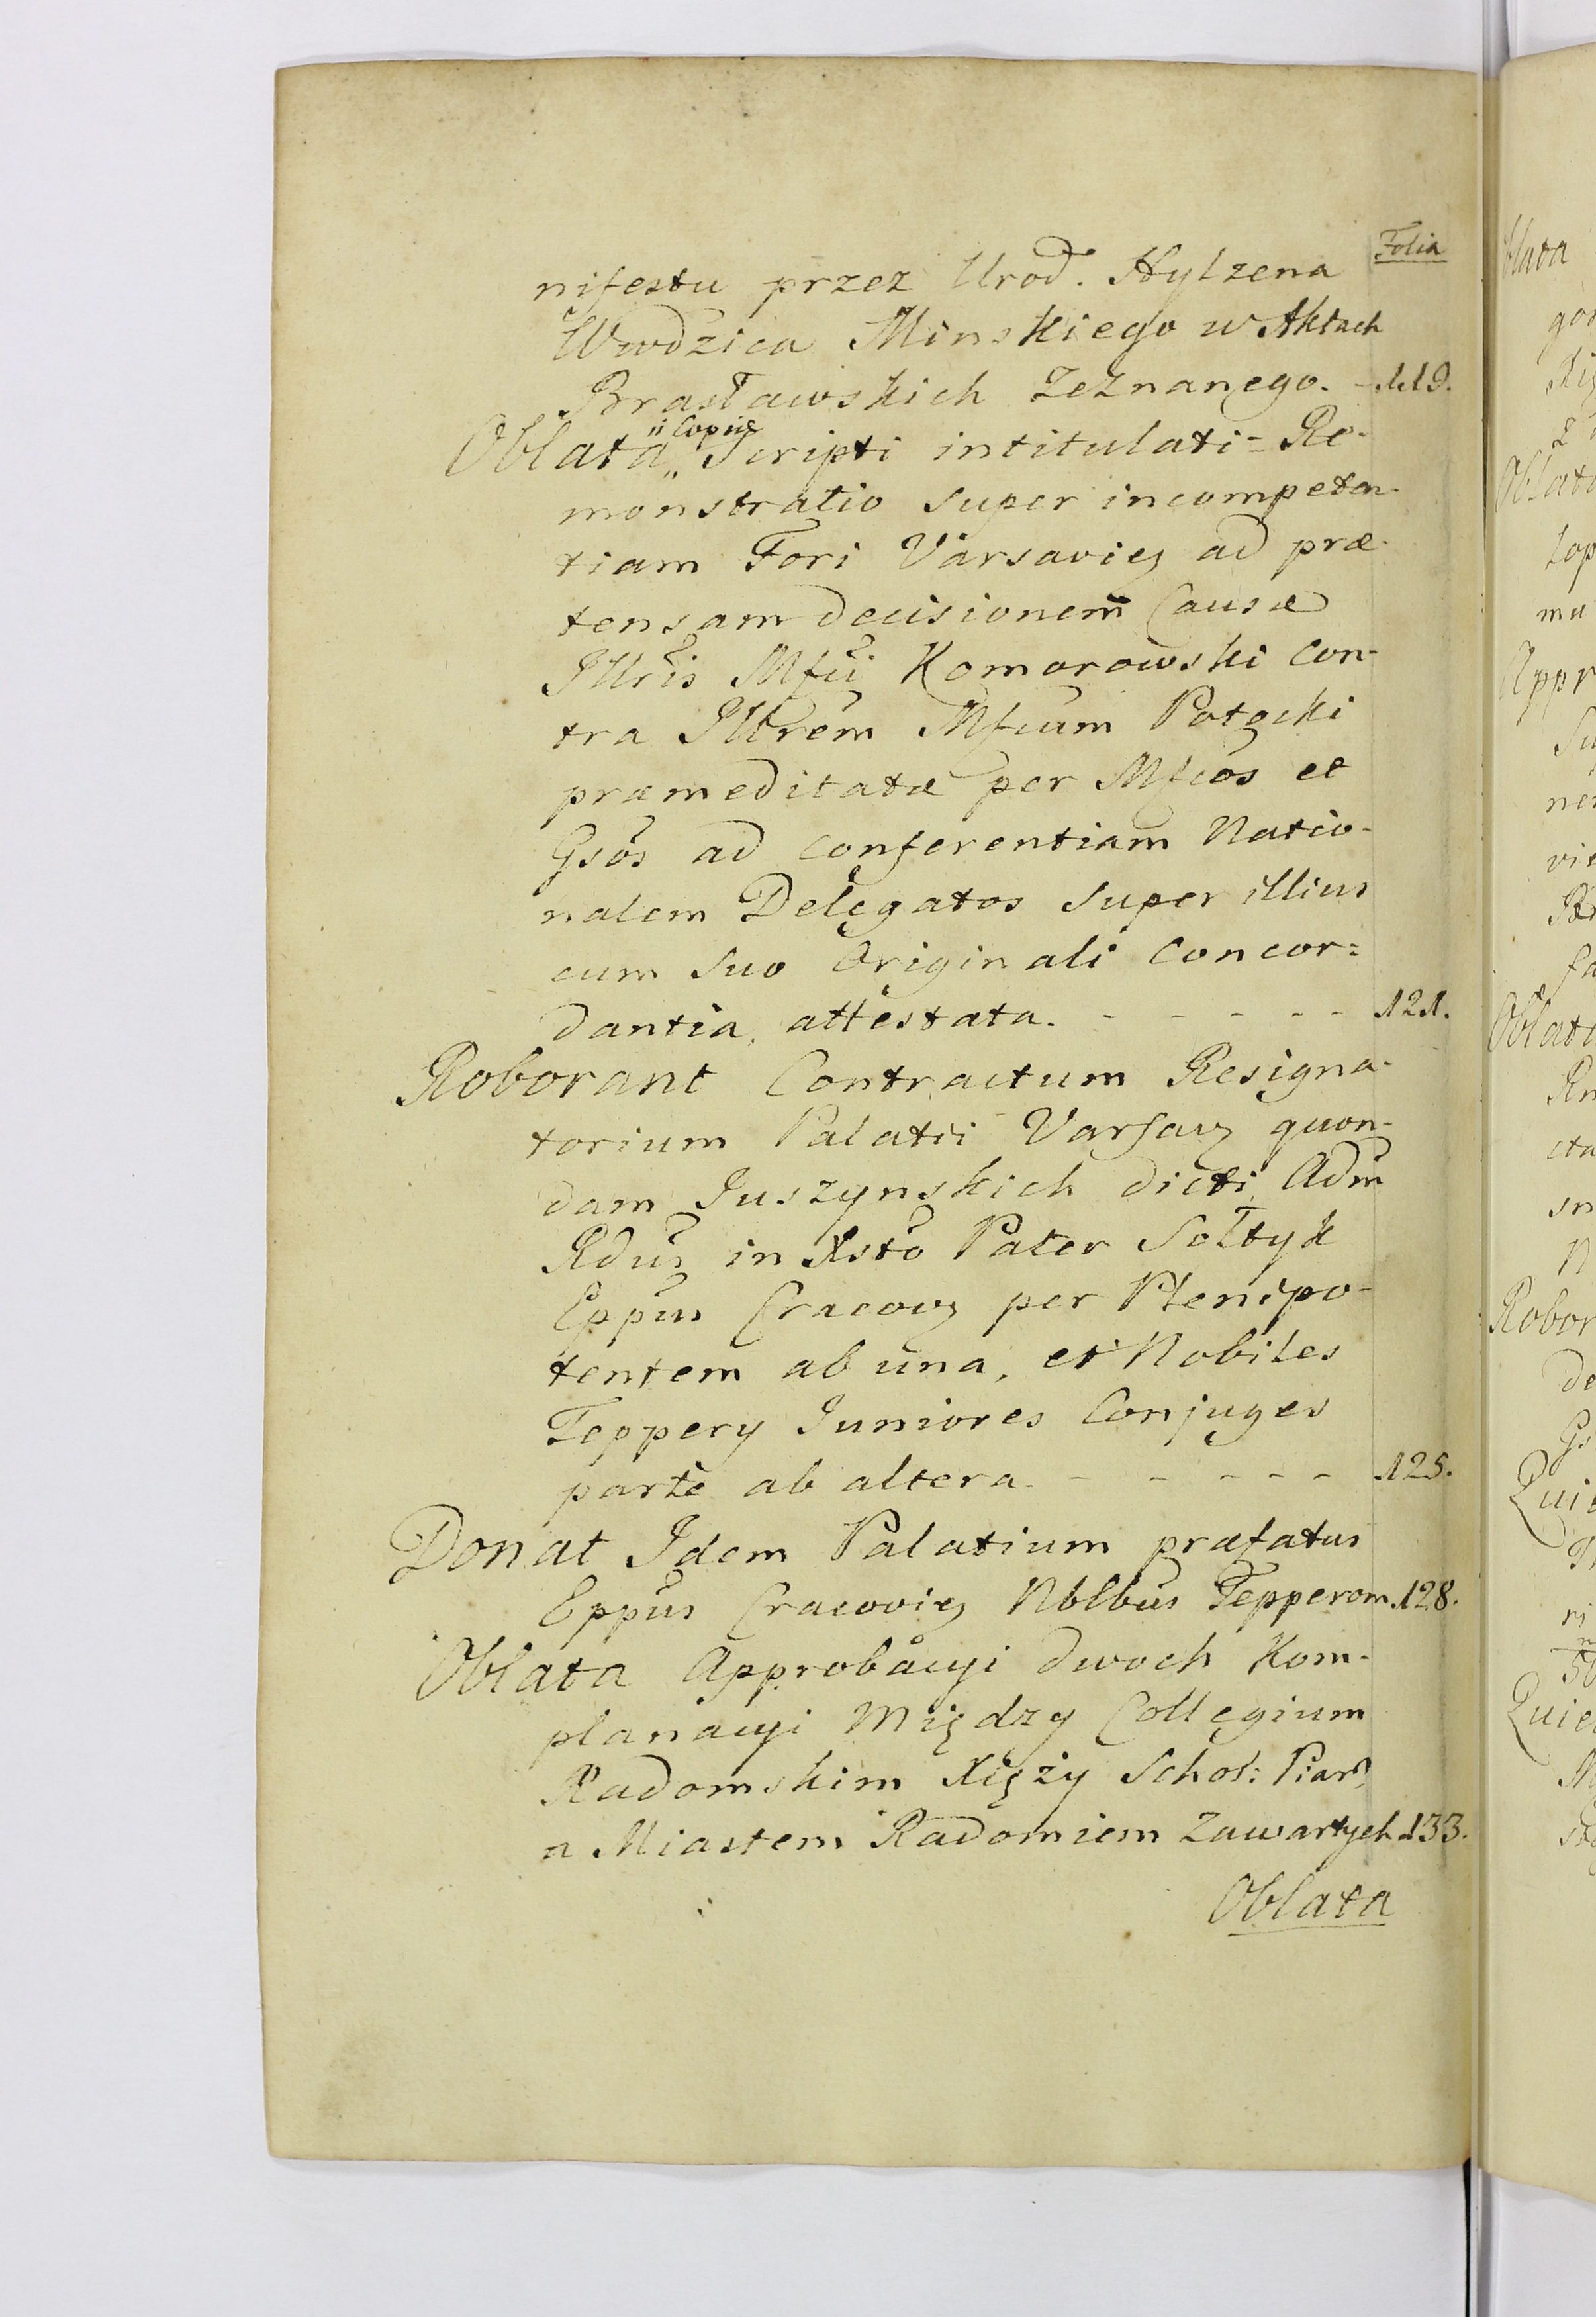 Folia
nifestu przez Urod. Hylzena
Wwdzica Minskiego w Aktach
Brasławskich Zeznanego. - 119.
Oblata „ Copiæ „ Scripti intitulati = Re-
monstratio super incompeten-
tiam Fori Varsavien ad præ-
tensam decisionem Causæ
Illris Mfci Komorowski con-
tra Illrem Mfcum Potocki
præmeditatæ per Mfcos et
Gsos ad conferentiam Natio-
nalem Delegatos super illius
cum suo Originali concor=
dantia, attestata. - - - - - 121.
Roborant Contractum Resigna-
torium Palatii Varsav quon-
dam Juszynskich dicti, Adm
Rdus in Xsto Pater Sołtyk
Eppus Cracov per Plenipo-
tentem ab una, et Nobiles
Teppery Juniores Conjuges
parte ab altera. - - - - - 125.
Donat Idem Palatium præfatus
Eppus Cracovien Nblbus Tepperom. 128.
Oblata Approbacyi dwoch Kom-
planacyi Między Collegium
Radomskim Xięży Schol: Piar:
a Miastem Radomiem Zawartych. 133.
Oblata